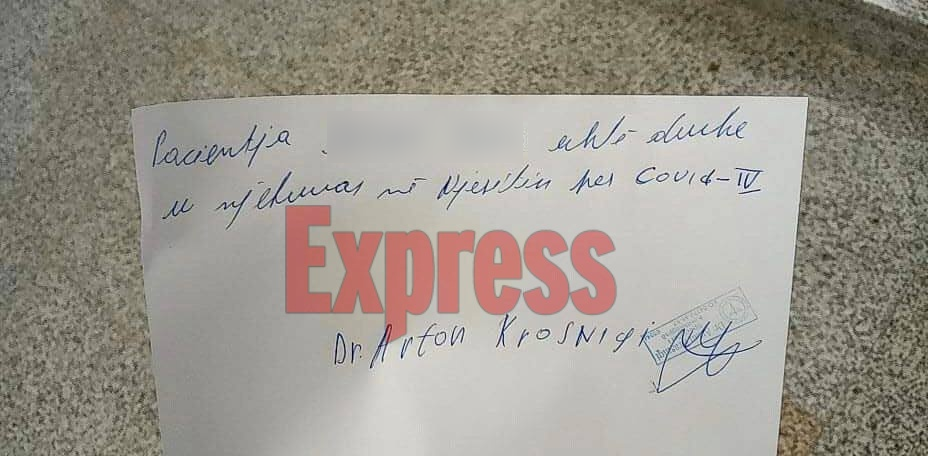 Pacientja është duke
u mjekuar në Njësitin për Covid-IV
Express
Dr. Arton Krasniqi